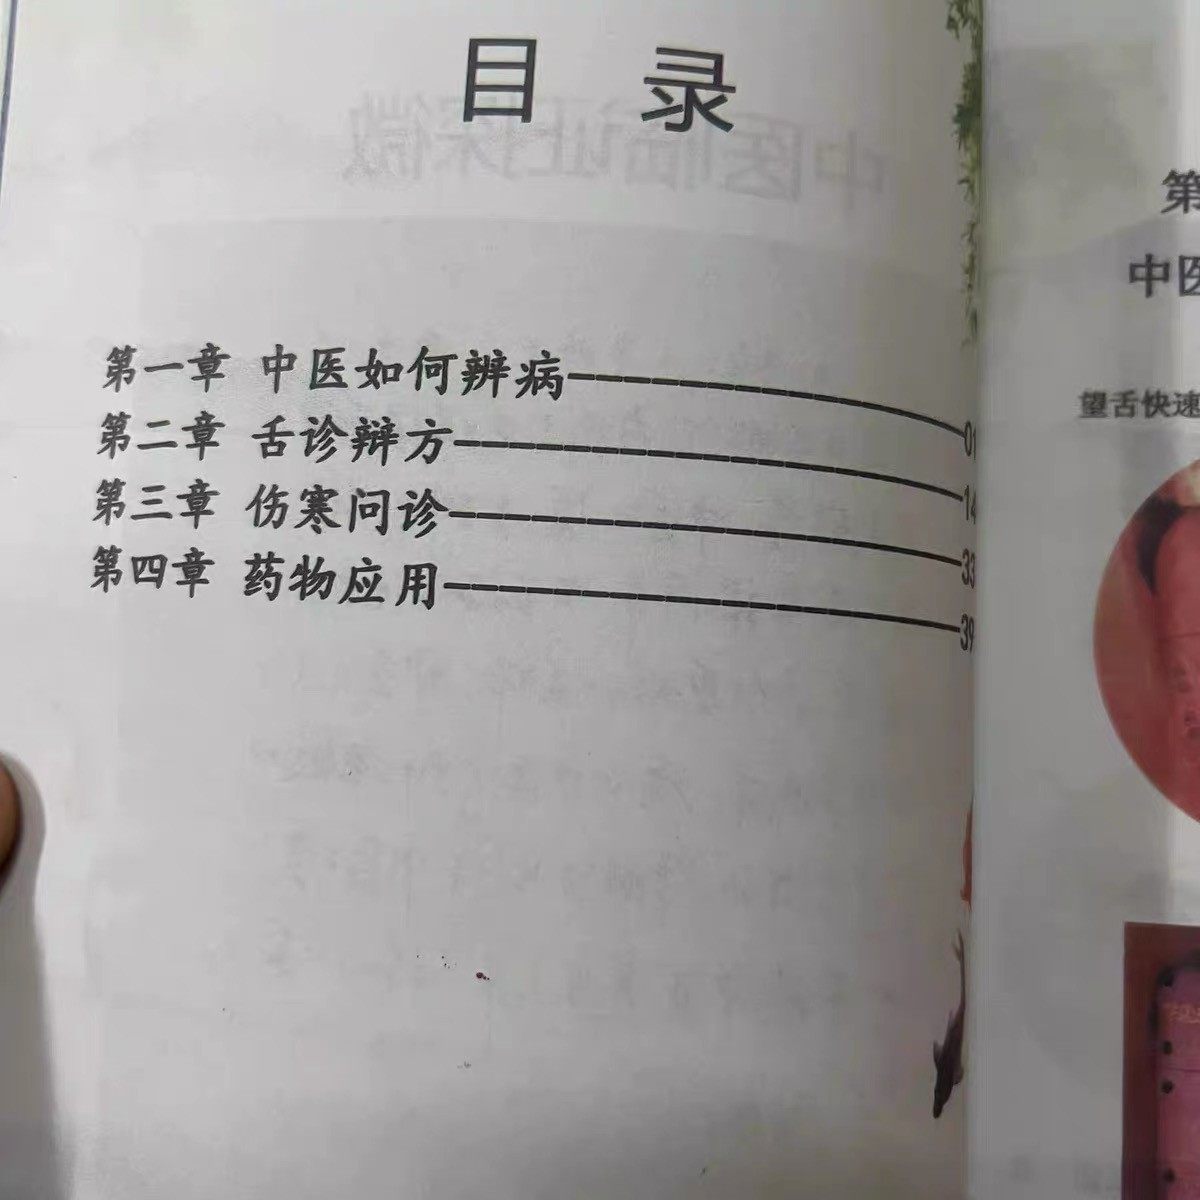 目 录
第一章 中医如何辨病 01
第二章 舌诊辩方 14
第三章 伤寒问诊 33
第四章 药物应用 39
第
中医
望舌快速